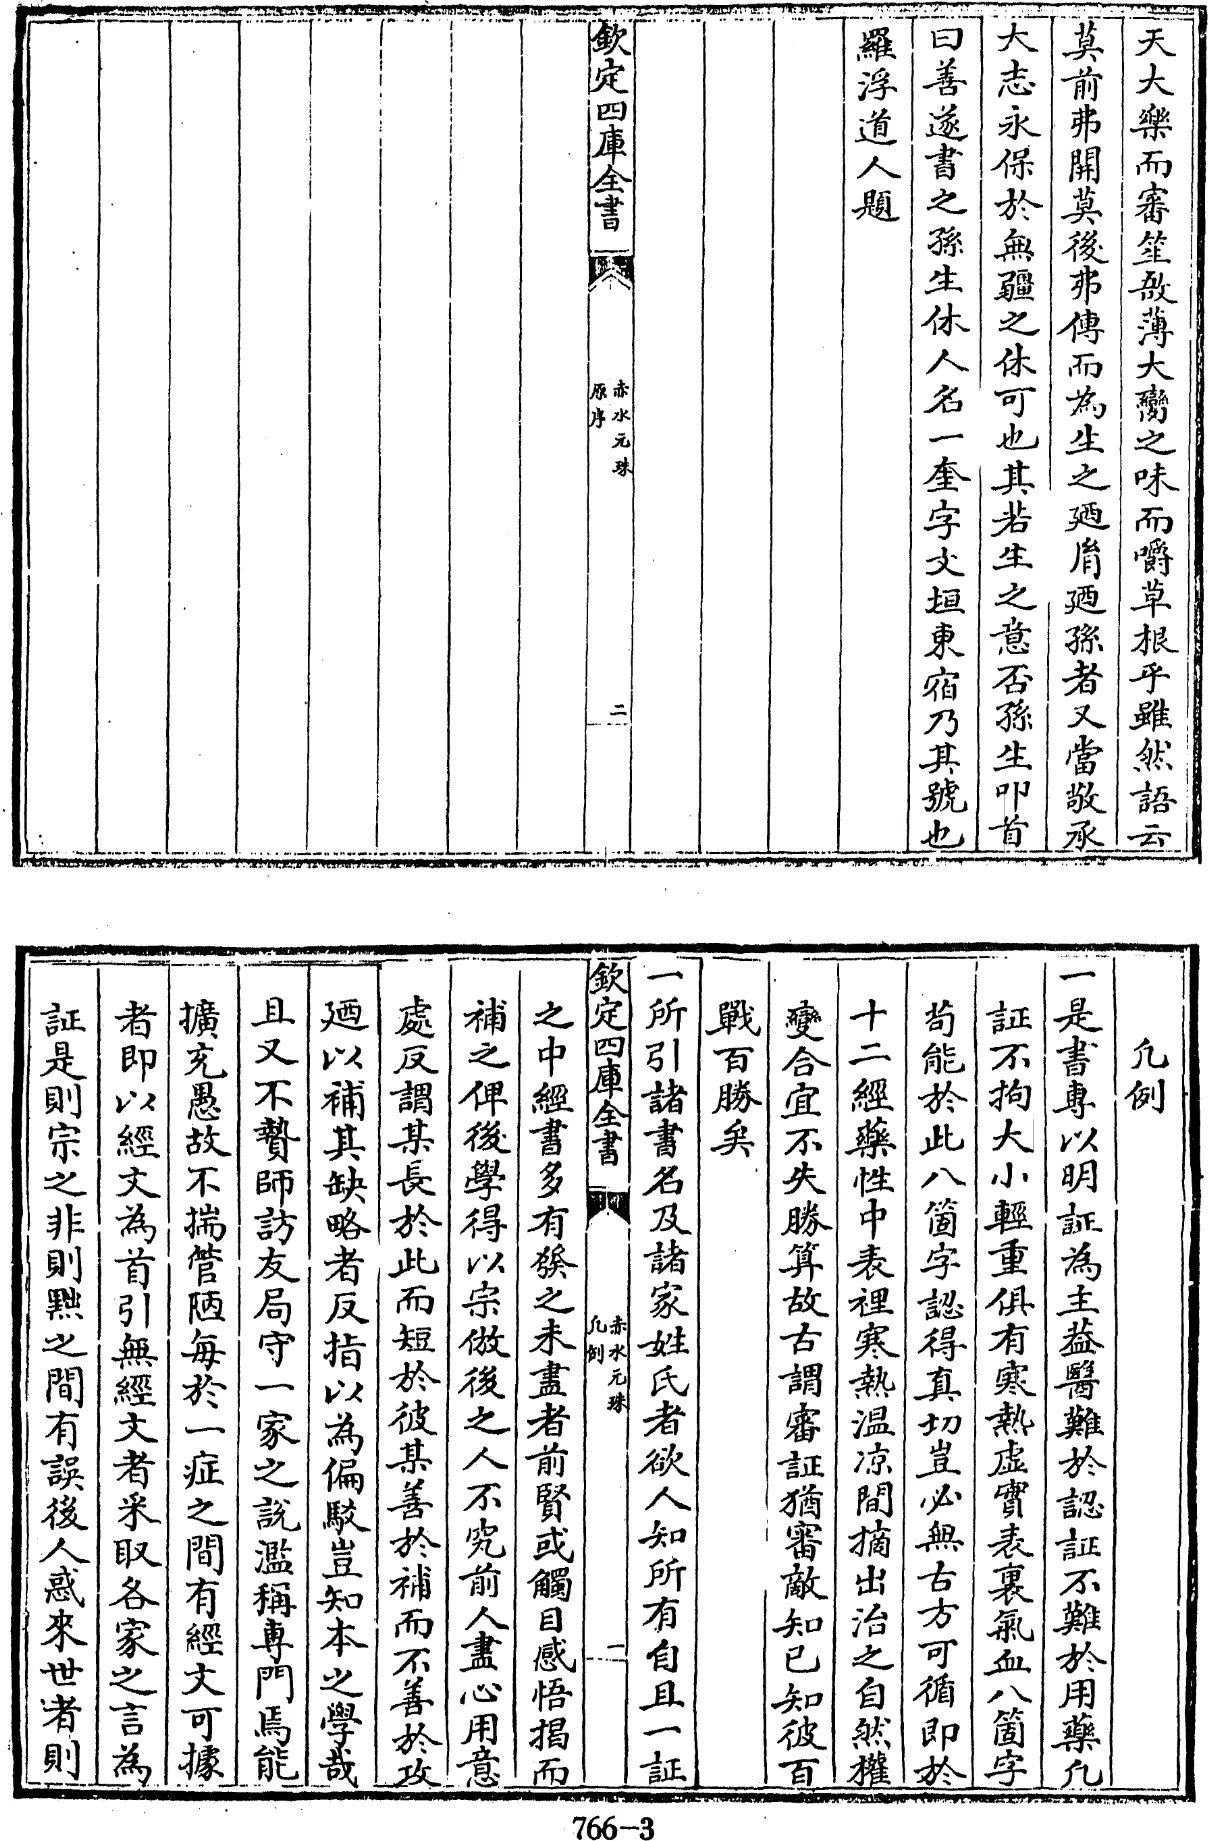 天大樂而審笙敔薄大臠之味而嚼草根乎雖然語云
莫前弗開莫後弗傳而為生之廼胄廼孫者又當敬承
大志永保於無疆之休可也其若生之意否孫生叩首
曰善遂書之孫生休人名一奎字文垣東宿乃其號也
羅浮道人題
欽定四庫全書
赤水元珠
原序
二
凡例
一是書專以明証為主葢醫難於認証不難於用藥凡
証不拘大小輕重俱有寒熱虛實表裏氣血八箇字
苟能於此八箇字認得真切豈必無古方可循即於
十二經藥性中表裡寒熱温凉間摘出治之自然權
變合宜不失勝算故古謂審証猶審敵知已知彼百
戰百勝矣
一所引諸書名及諸家姓氏者欲人知所有自且一証
欽定四庫全書
赤水元珠
凡例
一
之中經書多有發之未盡者前賢或觸目感悟揭而
補之俾後學得以宗倣後之人不究前人盡心用意
處反謂某長於此而短於彼某善於補而不善於攻
廼以補其缺略者反指以為偏駁豈知本之學哉
且又不贄師訪友局守一家之說濫稱專門焉能
擴充愚故不揣管陋每於一症之間有經文可據
者即以經文為首引無經文者采取各家之言為
証是則宗之非則黜之間有誤後人惑來世者則
766-3